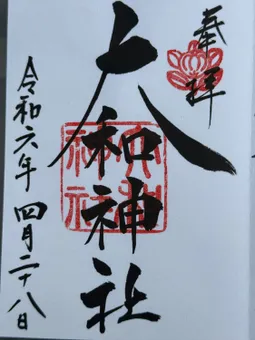 奉拝
大和神社
令和六年 四月二十八日